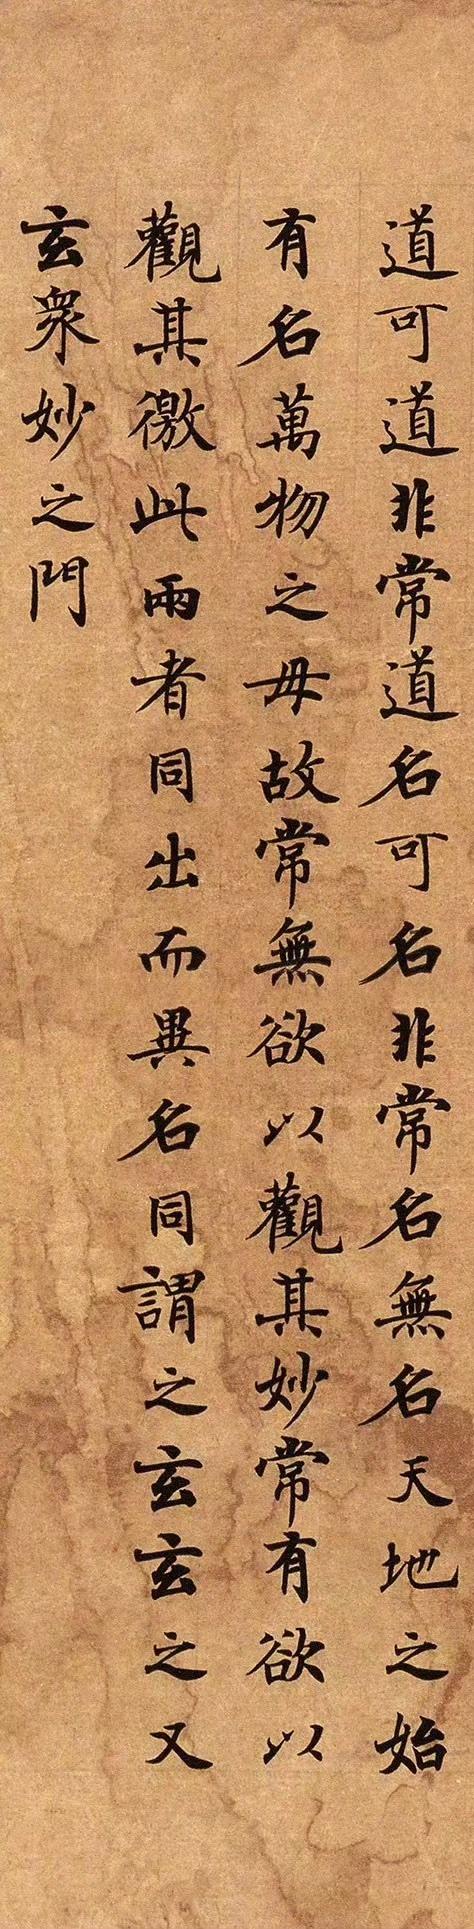 道可道非常道名可名非常名無名天地之始
有名萬物之母故常無欲以觀其妙常有欲以
觀其徼此兩者同出而異名同謂之玄玄之又
玄衆妙之門